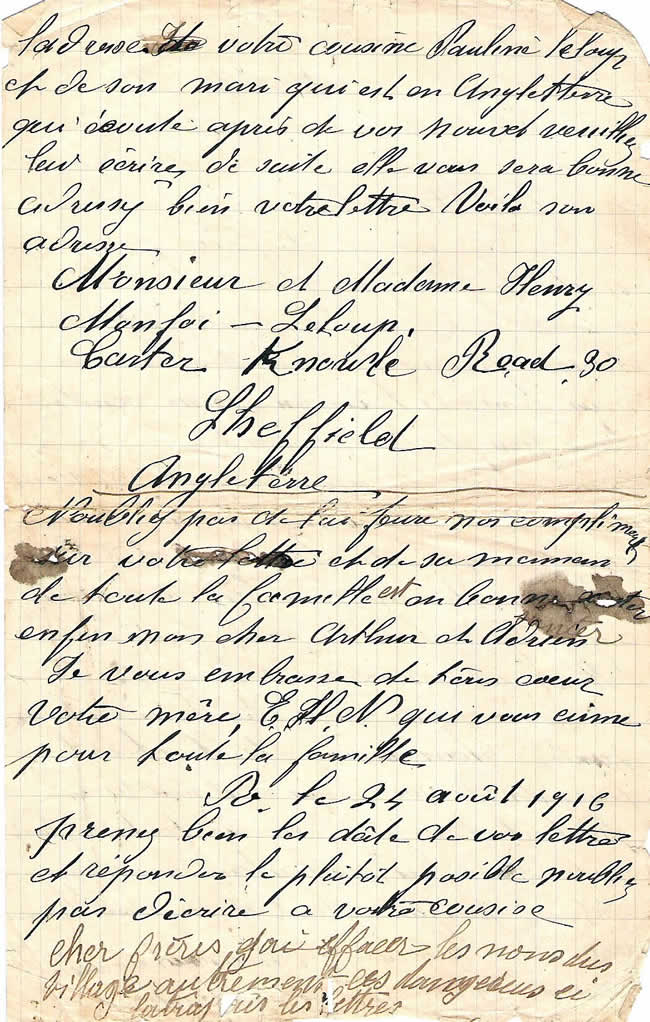 ladresse votre cousine Pauline leloup
et de son mari qui est en Angletterre
qui écoute après de vos nouvel veuillez
leur écrires de suite elle vous sera bonne
adressy bien votre lettre Voila son
adresse
Monsieur et Madame Henry
Monfoi - Leloup.
Carter Knowle Road 30
Sheffield
Angleterre
Noubliy pas de lui faire nos compliments
sur votre lettre et de sa maman
de toute la famille est en bonne
enfin mon cher Arthur et Adrien
Je vous embrasse de tous cœur
Votre mère E. H. N. qui vous aime
pour toute la famille
le 24 août 1916
prenez bien les dâte de vos lettre
et réponder le plutôt posible noubliez
pas décrire a votre cousise
cher frères jai effacer les noms des
village autrement ces dangereus ci
les lettres